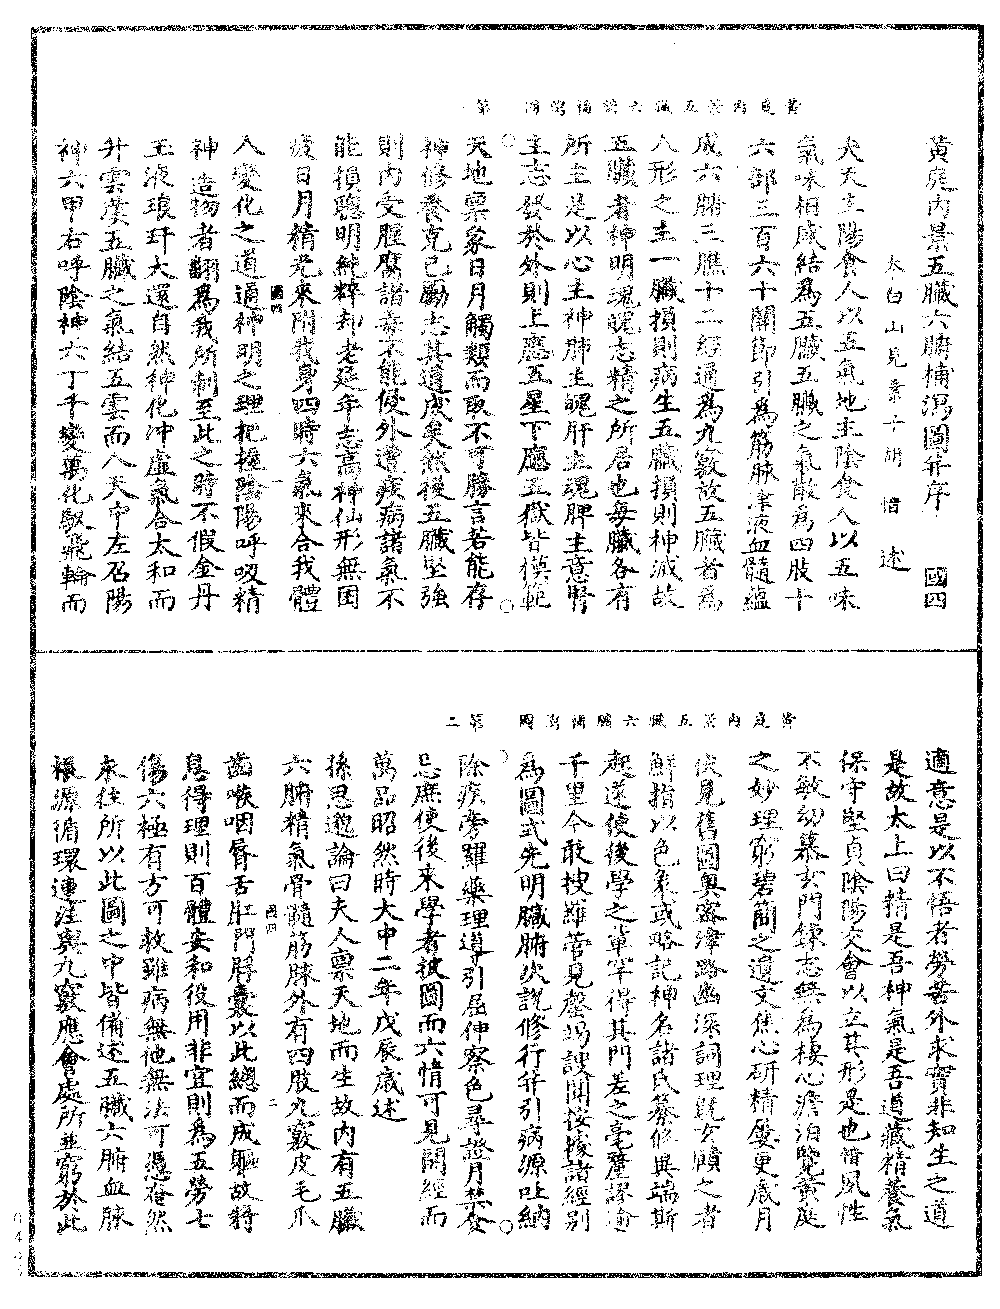 黃庭內景五臟六腑補瀉圖并序　國四
太白山見素子胡　愔　述
夫天主陽食人以五氣地主陰食人以五味
氣味相感結為五臟五臟之氣散為四肢十
六部三百六十關節引為筋脉津液血髓蘊
成六腑三膲十二經通為九竅故五臟者為
人形之主一臟損則病生五臟損則神滅故
五臟者神明魂魄志精之所居也每臟各有
所主是以心主神肺主魄肝主魂脾主意腎
主志發於外則上應五星下應五嶽皆模範
天地禀象日月觸類而取不可勝言若能存
神修養克己勵志其道成矣然後五臟堅強
則內受腥腐諸毒不能侵外遭疾病諸氣不
能損聰明純粹却老延年志高神仙形無困
疲日月精光來附我身四時六氣來合我體
入變化之道通神明之理把握陰陽呼吸精
神造物者翻為我所制至此之時不假金丹
玉液琅玕大還自然神化冲虛氣合太和而
升雲漢五臟之氣結五雲而入天中左召陽
神六甲右呼陰神六丁千變萬化馭飛輪而
黃庭內景五臟六腑補瀉圖　第一
國四　一
適意是以不悟者勞苦外求實非知生之道
是故太上曰精是吾神氣是吾道藏精養氣
保守堅貞陰陽交會以立其形是也愔夙性
不敏幼慕玄門鍊志無為棲心澹泊覽黃庭
之妙理窮碧簡之遺文焦心研精屢更歲月
伏見舊圖奧密津路幽深詞理既玄賾之者
鮮指以色象或略記神名諸氏纂修異端斯
起遂使後學之輩罕得其門差之毫釐謬逾
千里今敢搜羅管見罄竭謏聞按據諸經別
為圖式先明臟腑次說修行并引病源吐納
除疾旁羅藥理導引屈伸察色尋證月禁食
忌庶使後來學者披圖而六情可見開經而
萬品昭然時大中二年戊辰歲述
孫思邈論曰夫人禀天地而生故內有五臟
六腑精氣骨髓筋脉外有四肢九竅皮毛爪
齒喉咽唇舌肛門胮囊以此總而成軀故將
息得理則百體安和役用非宜則為五勞七
傷六極有方可救雖病無他無法可憑奄然
來往所以此圖之中皆備述五臟六腑血脉
根源循環連注與九竅應會處所並窮於此
黃庭內景五臟六腑補瀉圖　第二
國四　二